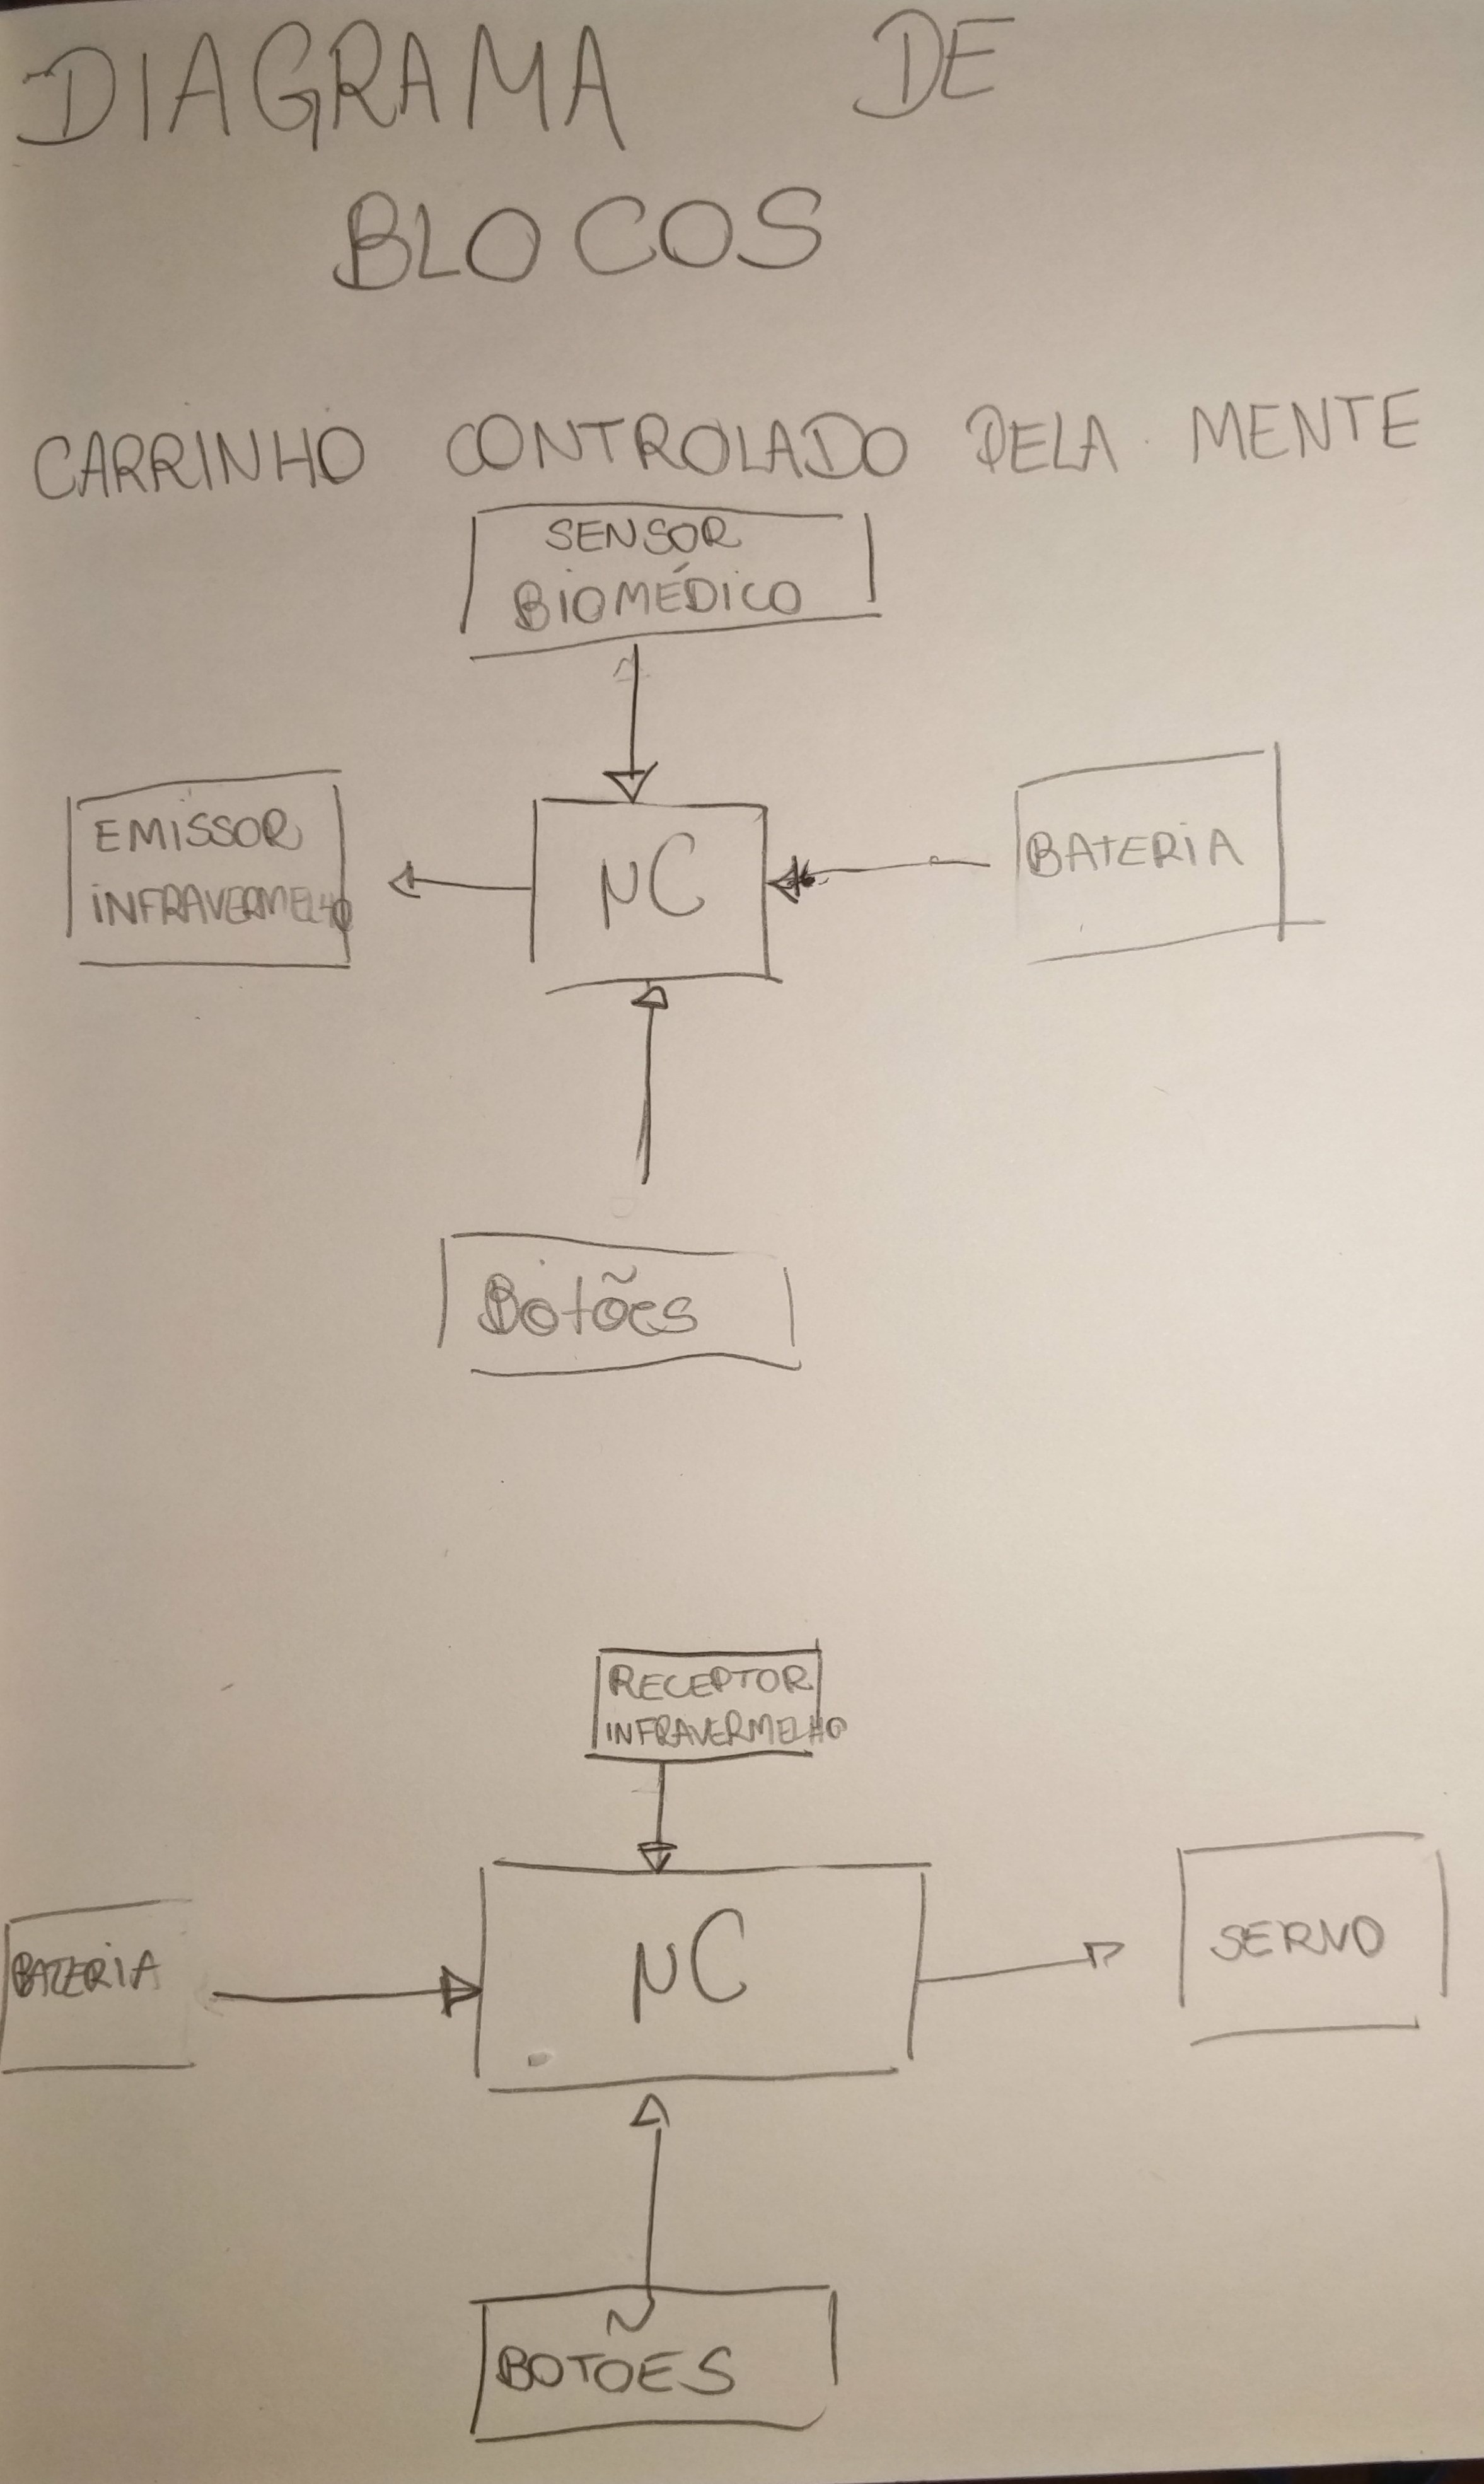 DIAGRAMA DE
BLOCOS
CARRINHO CONTROLADO PELA MENTE
SENSOR
BIOMÉDICO
EMISSOR
INFRAVERMELHO
μC
BATERIA
Botões
RECEPTOR
INFRAVERMELHO
BATERIA
μC
SERVO
BOTÕES